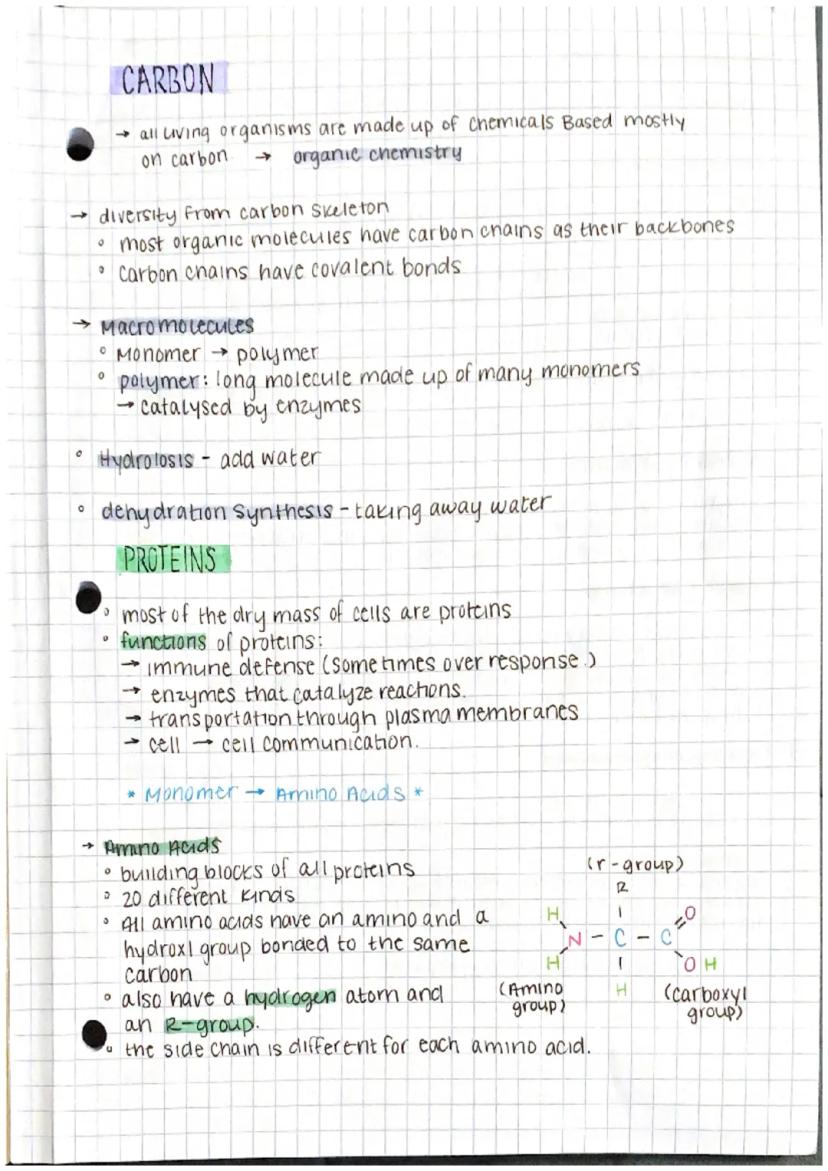 CARBON
→ all living organisms are made up of chemicals Based mostly
on carbon → organic chemistry
→ diversity from carbon skeleton
° most organic molecules have carbon chains as their backbones
° carbon chains have covalent bonds
→ Macromolecules
° Monomer → polymer
° polymer: long molecule made up of many monomers
→ catalysed by enzymes
° Hydrolosis - add water
° dehydration synthesis - taking away water
PROTEINS
° most of the dry mass of cells are proteins
° functions of proteins:
→ immune defense (sometimes over response.)
→ enzymes that catalyze reachons.
→ transportation through plasma membranes
→ cell → cell communication.
* Monomer → Amino Acids *
→ Amino Acids
° building blocks of all proteins
° 20 different kinds
° All amino acids have an amino and a
hydroxl group bonded to the same
carbon
° also have a hydrogen atom and
an R-group.
° the side chain is different for each amino acid.
(r-group)
R
H O
N - C - C
H O H
H
(Amino
group)
(carboxyl
group)